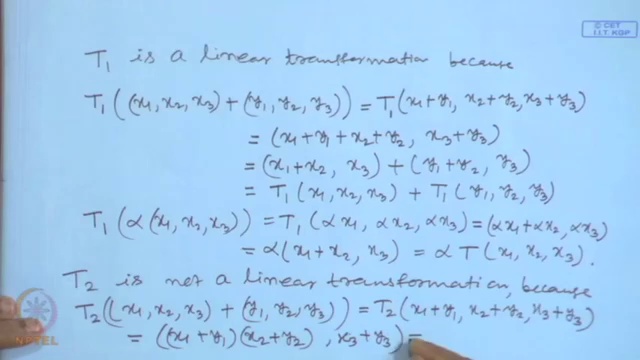 © CET
I.I.T. KGP
T₁ is a linear transformation because
T₁((x₁, x₂, x₃) + (y₁, y₂, y₃)) = T₁(x₁+y₁, x₂+y₂, x₃+y₃)
= (x₁+y₁+x₂+y₂, x₃+y₃)
= (x₁+x₂, x₃) + (y₁+y₂, y₃)
= T₁(x₁, x₂, x₃) + T₁(y₁, y₂, y₃)
T₁(α(x₁, x₂, x₃)) = T₁(αx₁, αx₂, αx₃) = (αx₁+αx₂, αx₃)
= α(x₁+x₂, x₃) = αT(x₁, x₂, x₃).
T₂ is not a linear transformation, because
T₂((x₁, x₂, x₃) + (y₁, y₂, y₃)) = T₂(x₁+y₁, x₂+y₂, x₃+y₃)
= ((x₁+y₁)(x₂+y₂), x₃+y₃) =
NPTEL